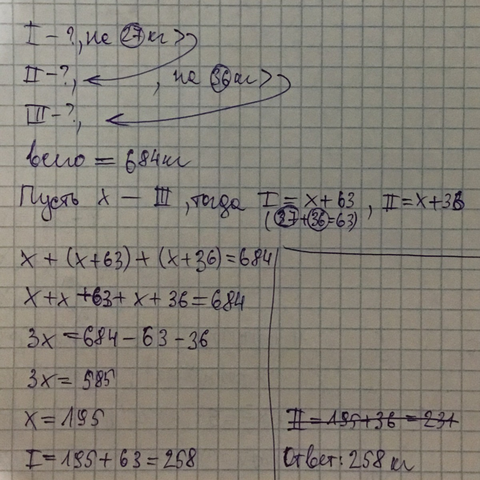 I - ?, на 27 кг >
II - ?, , на 36 кг >
III - ?,
всего = 684 кг
Пусть x - III, тогда I = x + 63, II = x + 36
(27 + 36 = 63)
x + (x + 63) + (x + 36) = 684
x + x + 63 + x + 36 = 684
3x = 684 - 63 - 36
3x = 585
x = 195
I = 195 + 63 = 258
II = 195 + 36 = 231
Ответ: 258 кг